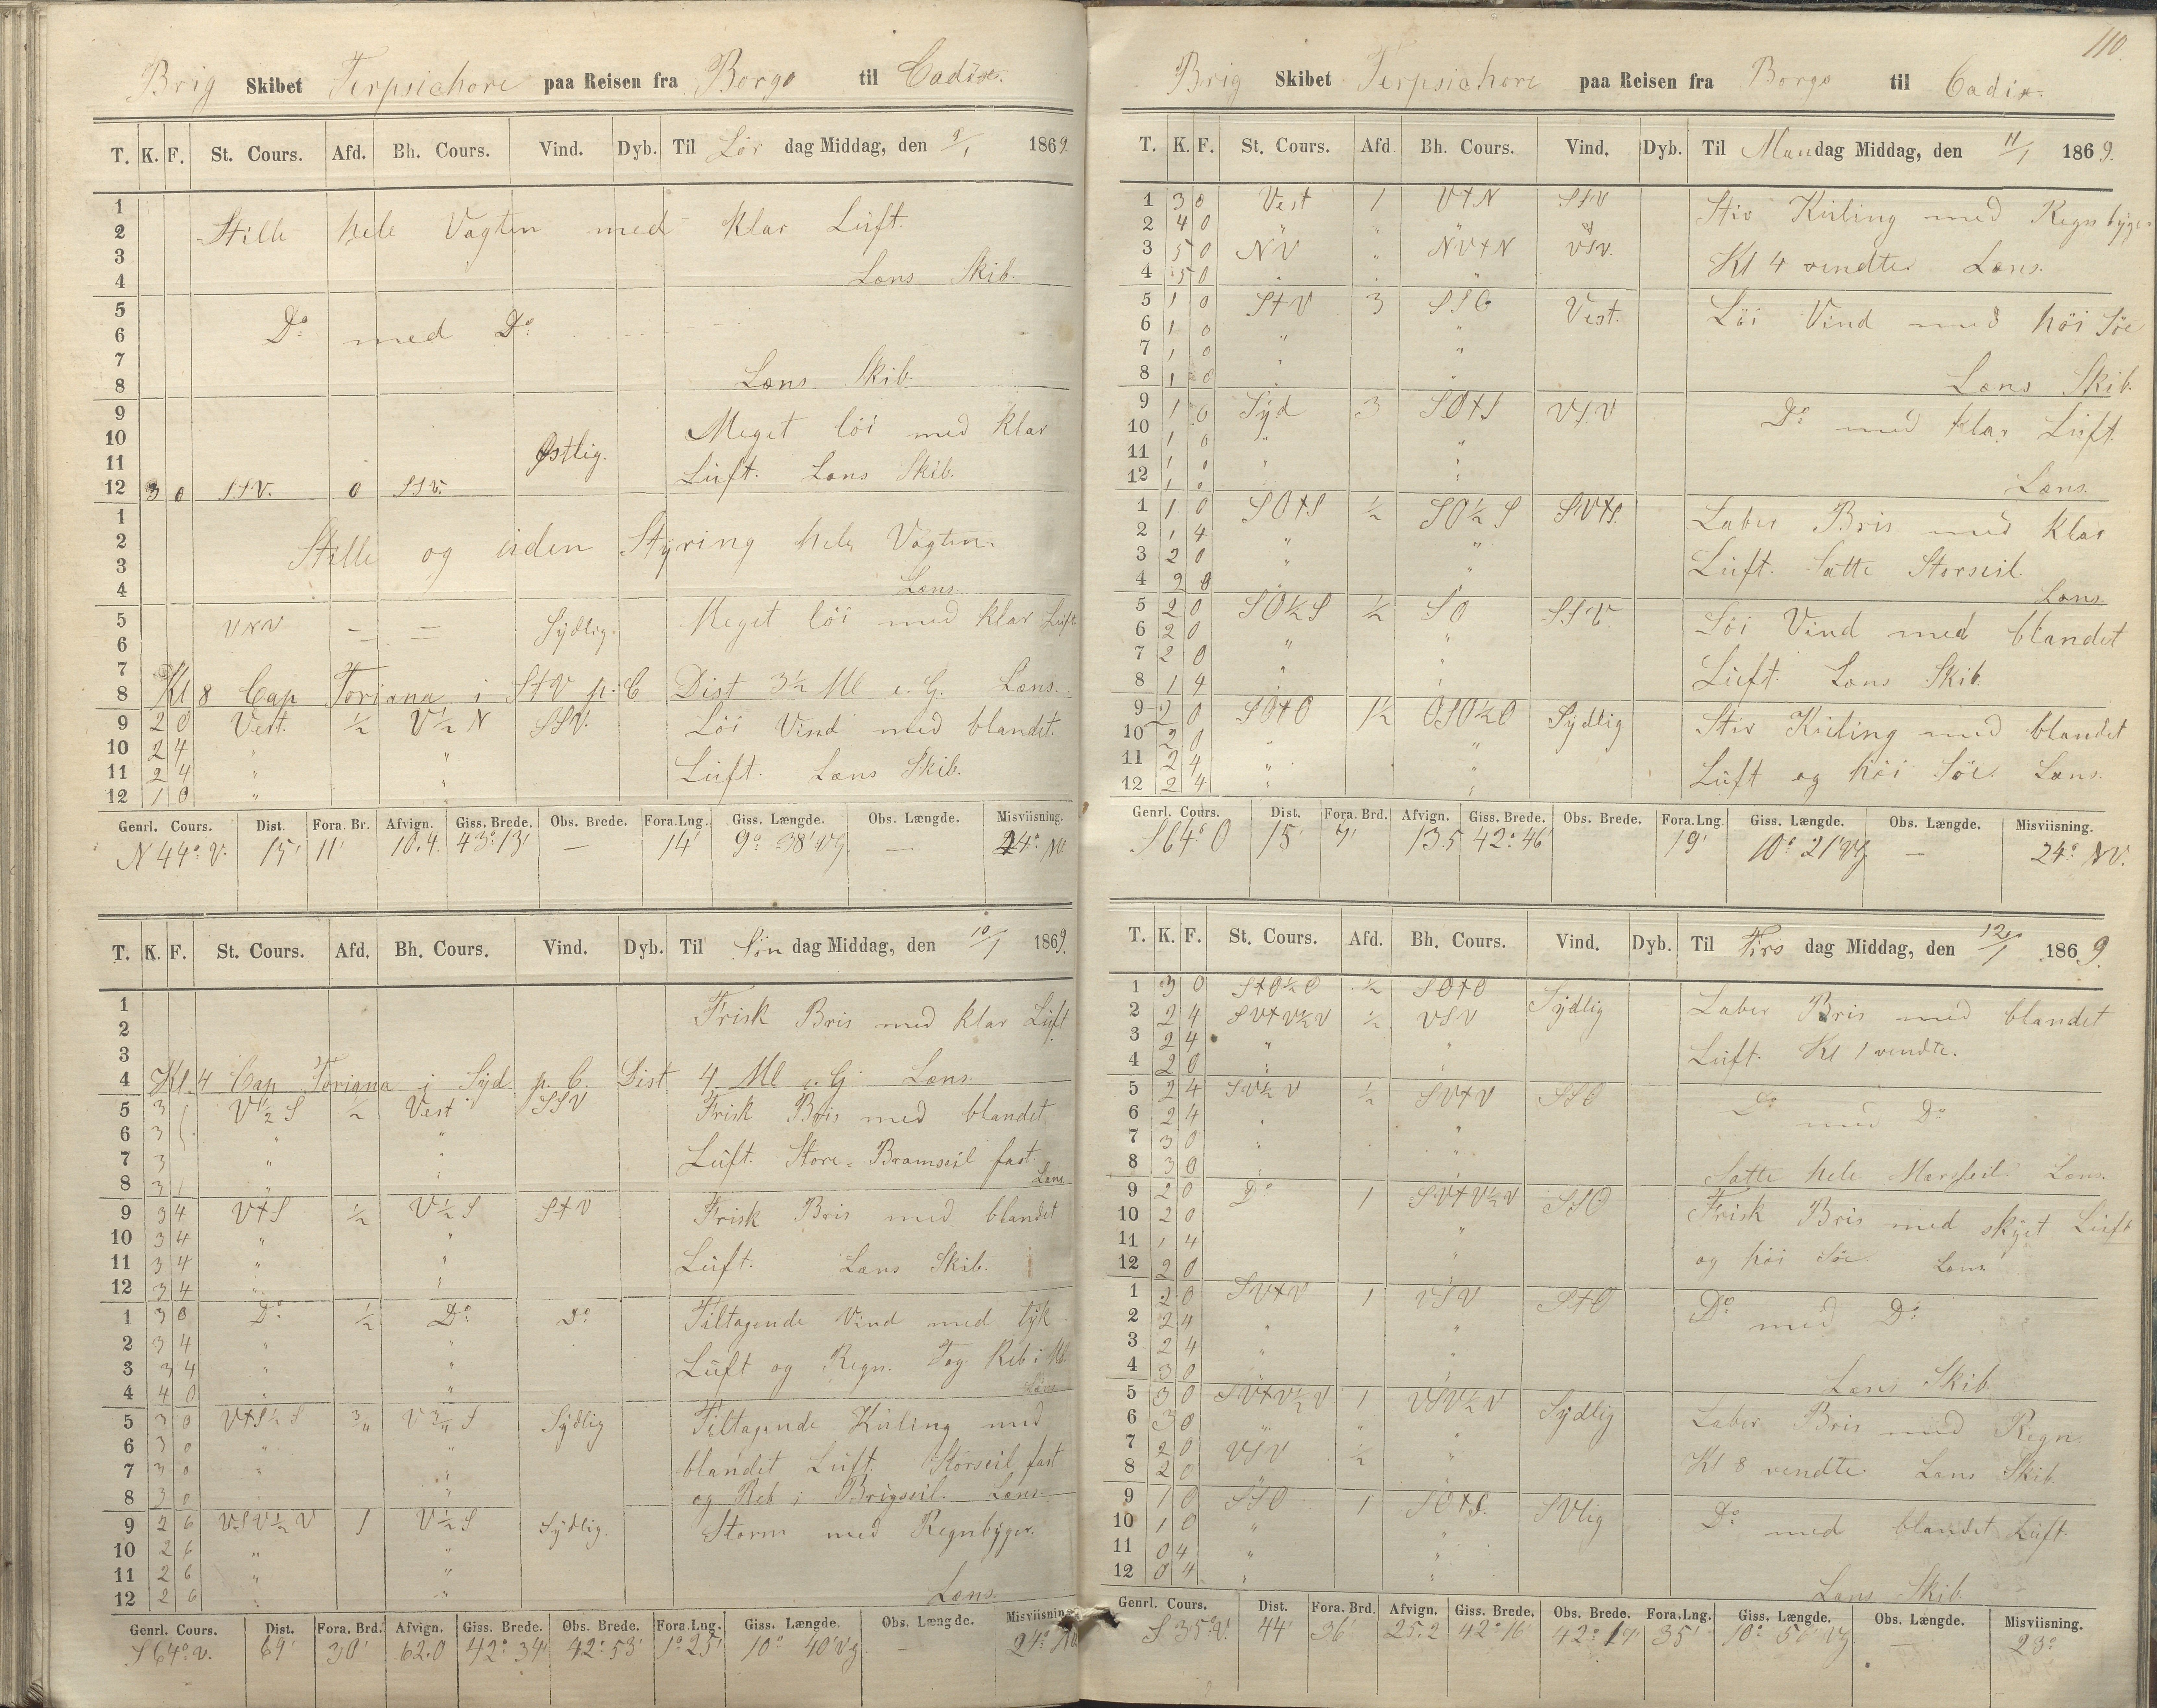 Brig Skibet Terpsichore paa Reisen fra Borgo til Cadix.
T. K. F. St. Cours. Afd. Bh. Cours. Vind. Dyb. Til Lör dag Middag, den 9/1 1869.
1
2 Stille hele Vagten med klar Lüft.
3
4 Læns Skib.
5
6 Do med Do
7
8 Læns Skib.
9 Meget löi med klar
10 Østlig.
11 Lüft. Læns Skib.
12 3 0 SSV. 0 SSV.
1
2 Stille og üden Styring hele Vagten.
3
4 Læns.
5 VNV = = Sÿdlig. Meget löi med klar Lüft
6
7
8 Kl 8 Cap Toriana i S+V p. C Dist 3½ Ml e. G. Læns.
9 2 0 Vest. ½ V½N SSV. Löi Vind med blandet
10 2 4 " "
11 2 4 " " Lüft. Læns Skib.
12 1 0 " "
Genrl. Cours. Dist. Fora. Br. Afvign. Giss. Brede. Obs. Brede. Fora.Lng. Giss. Længde. Obs. Længde. Misviisning.
N 44° V. 15' 11' 10.4. 43° 13' — 14' 9° 38' Vg. — 24° NV
T. K. F. St. Cours. Afd. Bh. Cours. Vind. Dyb. Til Sön dag Middag, den 10/1 1869.
1 Frisk Bris med klar Lüft
2
3
4 Kl. 4 Cap Toriana i Sÿd p. C. Dist 4 Ml e. G. Læns.
5 3 V½S ½ Vest SSV Frisk Bris med blandet
6 3 " "
7 3 " " Lüft. Store-Bramseil fast.
8 3 " Læns
9 3 4 V+S ½ V½S S+V Frisk Bris med blandet
10 3 4 " "
11 3 4 " " Lüft. Læns Skib.
12 3 4 " "
1 3 0 Do ½ Do Do Tiltagende Vind med tÿk
2 3 4 " "
3 3 4 " " Lüft og Regn. Tog Reb i
4 4 0 " " Læns
5 3 0 V+S½S V S Sÿdlig Tiltagende Küling med
6 3 0 " "
7 3 0 " " blandet Lüft. Storseil fast
8 3 0 " " og Reb i Brigseil. Læns
9 2 6 VSV½V 1 V½S Sÿdlig. Storm med Regnbÿger.
10 2 6 " "
11 2 6 " "
12 2 6 " " Læns.
Genrl. Cours. Dist. Fora. Brd. Afvign. Giss. Brede. Obs. Brede. Fora.Lng. Giss. Længde. Obs. Længde. Misviisning.
S 64° V. 69' 30' 62.0 42° 34' 42° 53' 1° 25' 10° 40' Vg — 24° NV
110.
Brig Skibet Terpsichore paa Reisen fra Borgo til Cadix.
T. K. F. St. Cours. Afd Bh. Cours. Vind. Dyb. Til Mandag Middag, den 11/1 1869.
1 3 0 Vest 1 V+N SSV Stiv Küling med Regnbÿger
2 4 0 " " " "
3 5 0 NV " NV+N VSV. Kl 4 vendte. Læns.
4 5 0 " " "
5 1 0 S+V 3 SSO Vest. Löi Vind med höi Söe
6 1 0 " "
7 1 0 " "
8 1 0 " " Læns Skib.
9 1 0 Sÿd 3 SO+S VSV Do med klar Lüft.
10 1 0 " "
11 1 0 " "
12 1 0 " " Læns.
1 1 0 SO+S ½ SO½S SV+S. Laber Bris med klar
2 1 4 " "
3 2 0 " " Lüft. Satte Storseil.
4 2 0 " " Læns
5 2 0 SO½S ½ SO SSV. Löi Vind med blandet
6 2 0 " "
7 2 0 " " Lüft. Læns Skib.
8 1 4 " "
9 2 0 SO+O 1½ OSO½O Sÿdlig Stiv Küling med blandet
10 2 0 " "
11 2 4 " " Lüft og höi Söe. Læns.
12 2 4 " "
Genrl. Cours. Dist. Fora. Brd. Afvign. Giss. Brede. Obs. Brede. Fora.Lng. Giss. Længde. Obs. Længde. Misviisning.
S 64° O 15' 7' 13.5 42° 46' 19' 10° 21' Vg — 24° NV.
T. K. F. St. Cours. Afd. Bh. Cours. Vind. Dyb. Til Tirs dag Middag, den 12/1 1869.
1 3 0 S+O½O ½ SO+O Sÿdlig Laber Bris med blandet
2 2 4 SV+V½V ½ VSV
3 2 4 " " Lüft. Kl 1 vendte.
4 2 0 " "
5 2 4 SV½V ½ SV+V SSO Do med Do
6 2 4 " "
7 3 0 " "
8 3 0 " " Satte hele Marsseil. Læns.
9 2 0 Do 1 SV+V½V SSO Frisk Bris med skÿet Lüft
10 2 0 "
11 1 4 " og höi Söe. Læns
12 2 0 "
1 2 0 SV+V 1 VSV S+O Do med Do
2 2 4 " "
3 2 4 " "
4 3 0 " " Læns Skib.
5 3 0 SV+V½V 1 VSV½V Sÿdlig Laber Bris med Regn.
6 3 0 " " "
7 2 0 VSV ½ " Kl 8 vendte. Læns Skib.
8 2 0 " "
9 1 0 SSO 1 SO+S. SVlig Do med blandet Lüft.
10 1 0 " "
11 0 4 " "
12 0 4 " " Læns Skib.
Genrl. Cours. Dist. Fora. Brd. Afvign. Giss. Brede. Obs. Brede. Fora.Lng. Giss. Længde. Obs. Længde. Misviisning.
S 35° V. 44' 36' 25.2 42° 16' 42° 17' 35' 10° 56' Vg — 23°